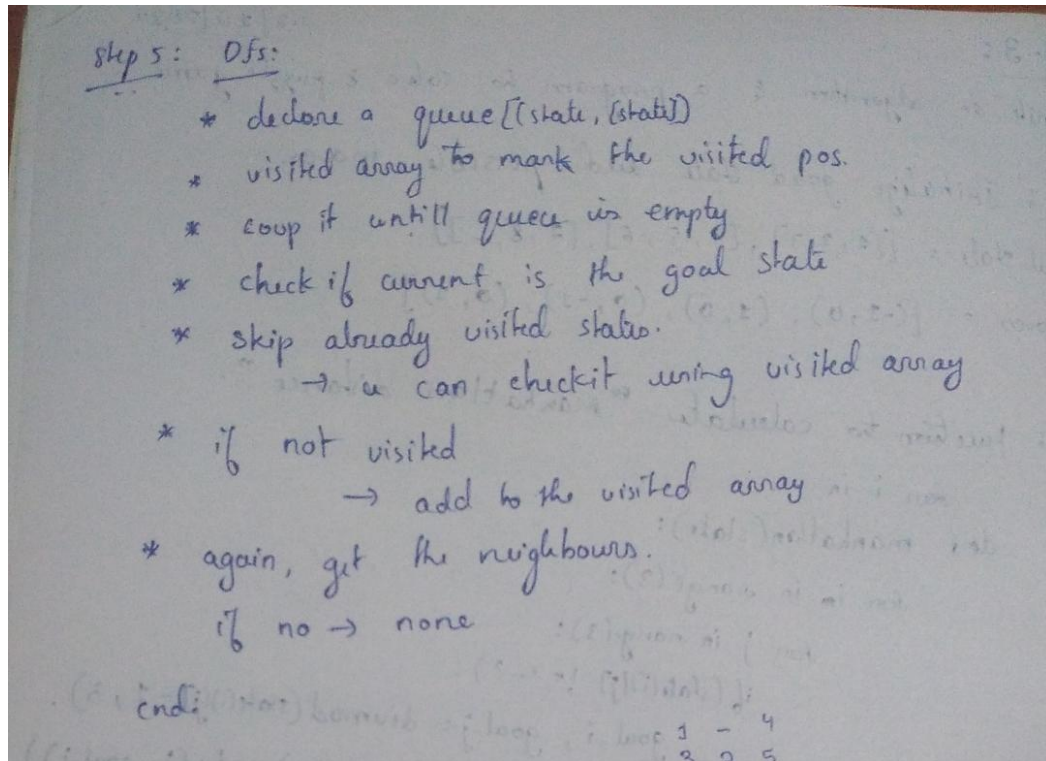 step 5: Dfs:
* declare a queue[(state, [state])
* visited array to mark the visited pos.
* loop it untill queue is empty
* check if current is the goal state
* skip already visited states.
→ u can checkit using visited array
* if not visited
→ add to the visited array
* again, get the neighbours.
if no → none
end:
1 - 4
3 2 5